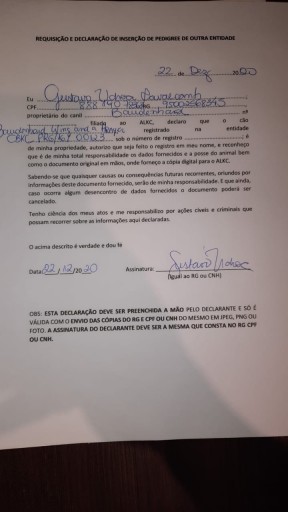 REQUISIÇÃO E DECLARAÇÃO DE INSERÇÃO DE PEDIGREE DE OUTRA ENTIDADE
22 de Dez 2020
Eu Gustavo Uchoa Cavalcanti
CPF 
proprietário do canil Baudenhaus nº
filiado ao ALKC, declaro que o cão
registrado na entidade
CBKC sob o número de registro é
de minha propriedade, autorizo que seja feito o registro em meu nome, e reconheço
que é de minha total responsabilidade os dados fornecidos e a posse do animal bem
como o documento original em mãos, onde forneço a cópia digital para o ALKC.
Sabendo-se que quaisquer causas ou consequências futuras recorrentes, oriundos por
informações deste documento fornecido, serão de minha responsabilidade. E que ainda,
caso ocorra algum desencontro de dados fornecidos o documento poderá ser
cancelado.
Tenho ciência dos meus atos e me responsabilizo por ações cíveis e criminais que
possam recorrer sobre as informações aqui declaradas.
O acima descrito é verdade e dou fé
Data: 22/12/2020 Assinatura:
(Igual ao RG ou CNH)
OBS: ESTA DECLARAÇÃO DEVE SER PREENCHIDA A MÃO PELO DECLARANTE E SÓ É
VÁLIDA COM O ENVIO DAS CÓPIAS DO RG E CPF OU CNH DO MESMO EM JPEG, PNG OU
FOTO. A ASSINATURA DO DECLARANTE DEVE SER A MESMA QUE CONSTA NO RG CPF
OU CNH.